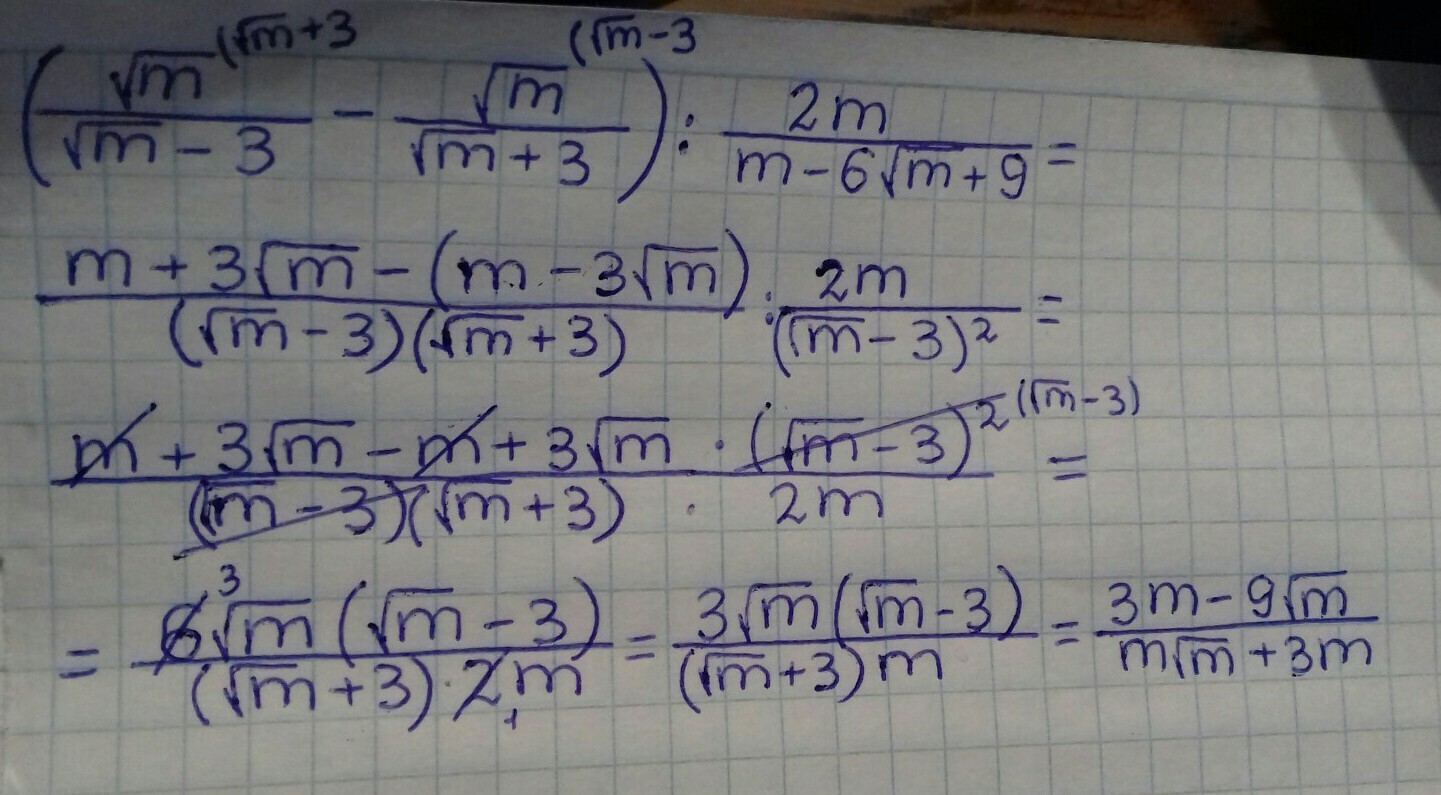 (√m^(√m+3 / √m-3 - √m^(√m-3 / √m+3) : 2m / m-6√m+9 =
m+3√m-(m-3√m) / (√m-3)(√m+3) : 2m / (√m-3)² =
m+3√m-m+3√m · (√m-3)² (√m-3) / (√m-3)(√m+3) · 2m =
= 6 3 √m(√m-3) / (√m+3)·2 1 m = 3√m(√m-3) / (√m+3)m = 3m-9√m / m√m+3m